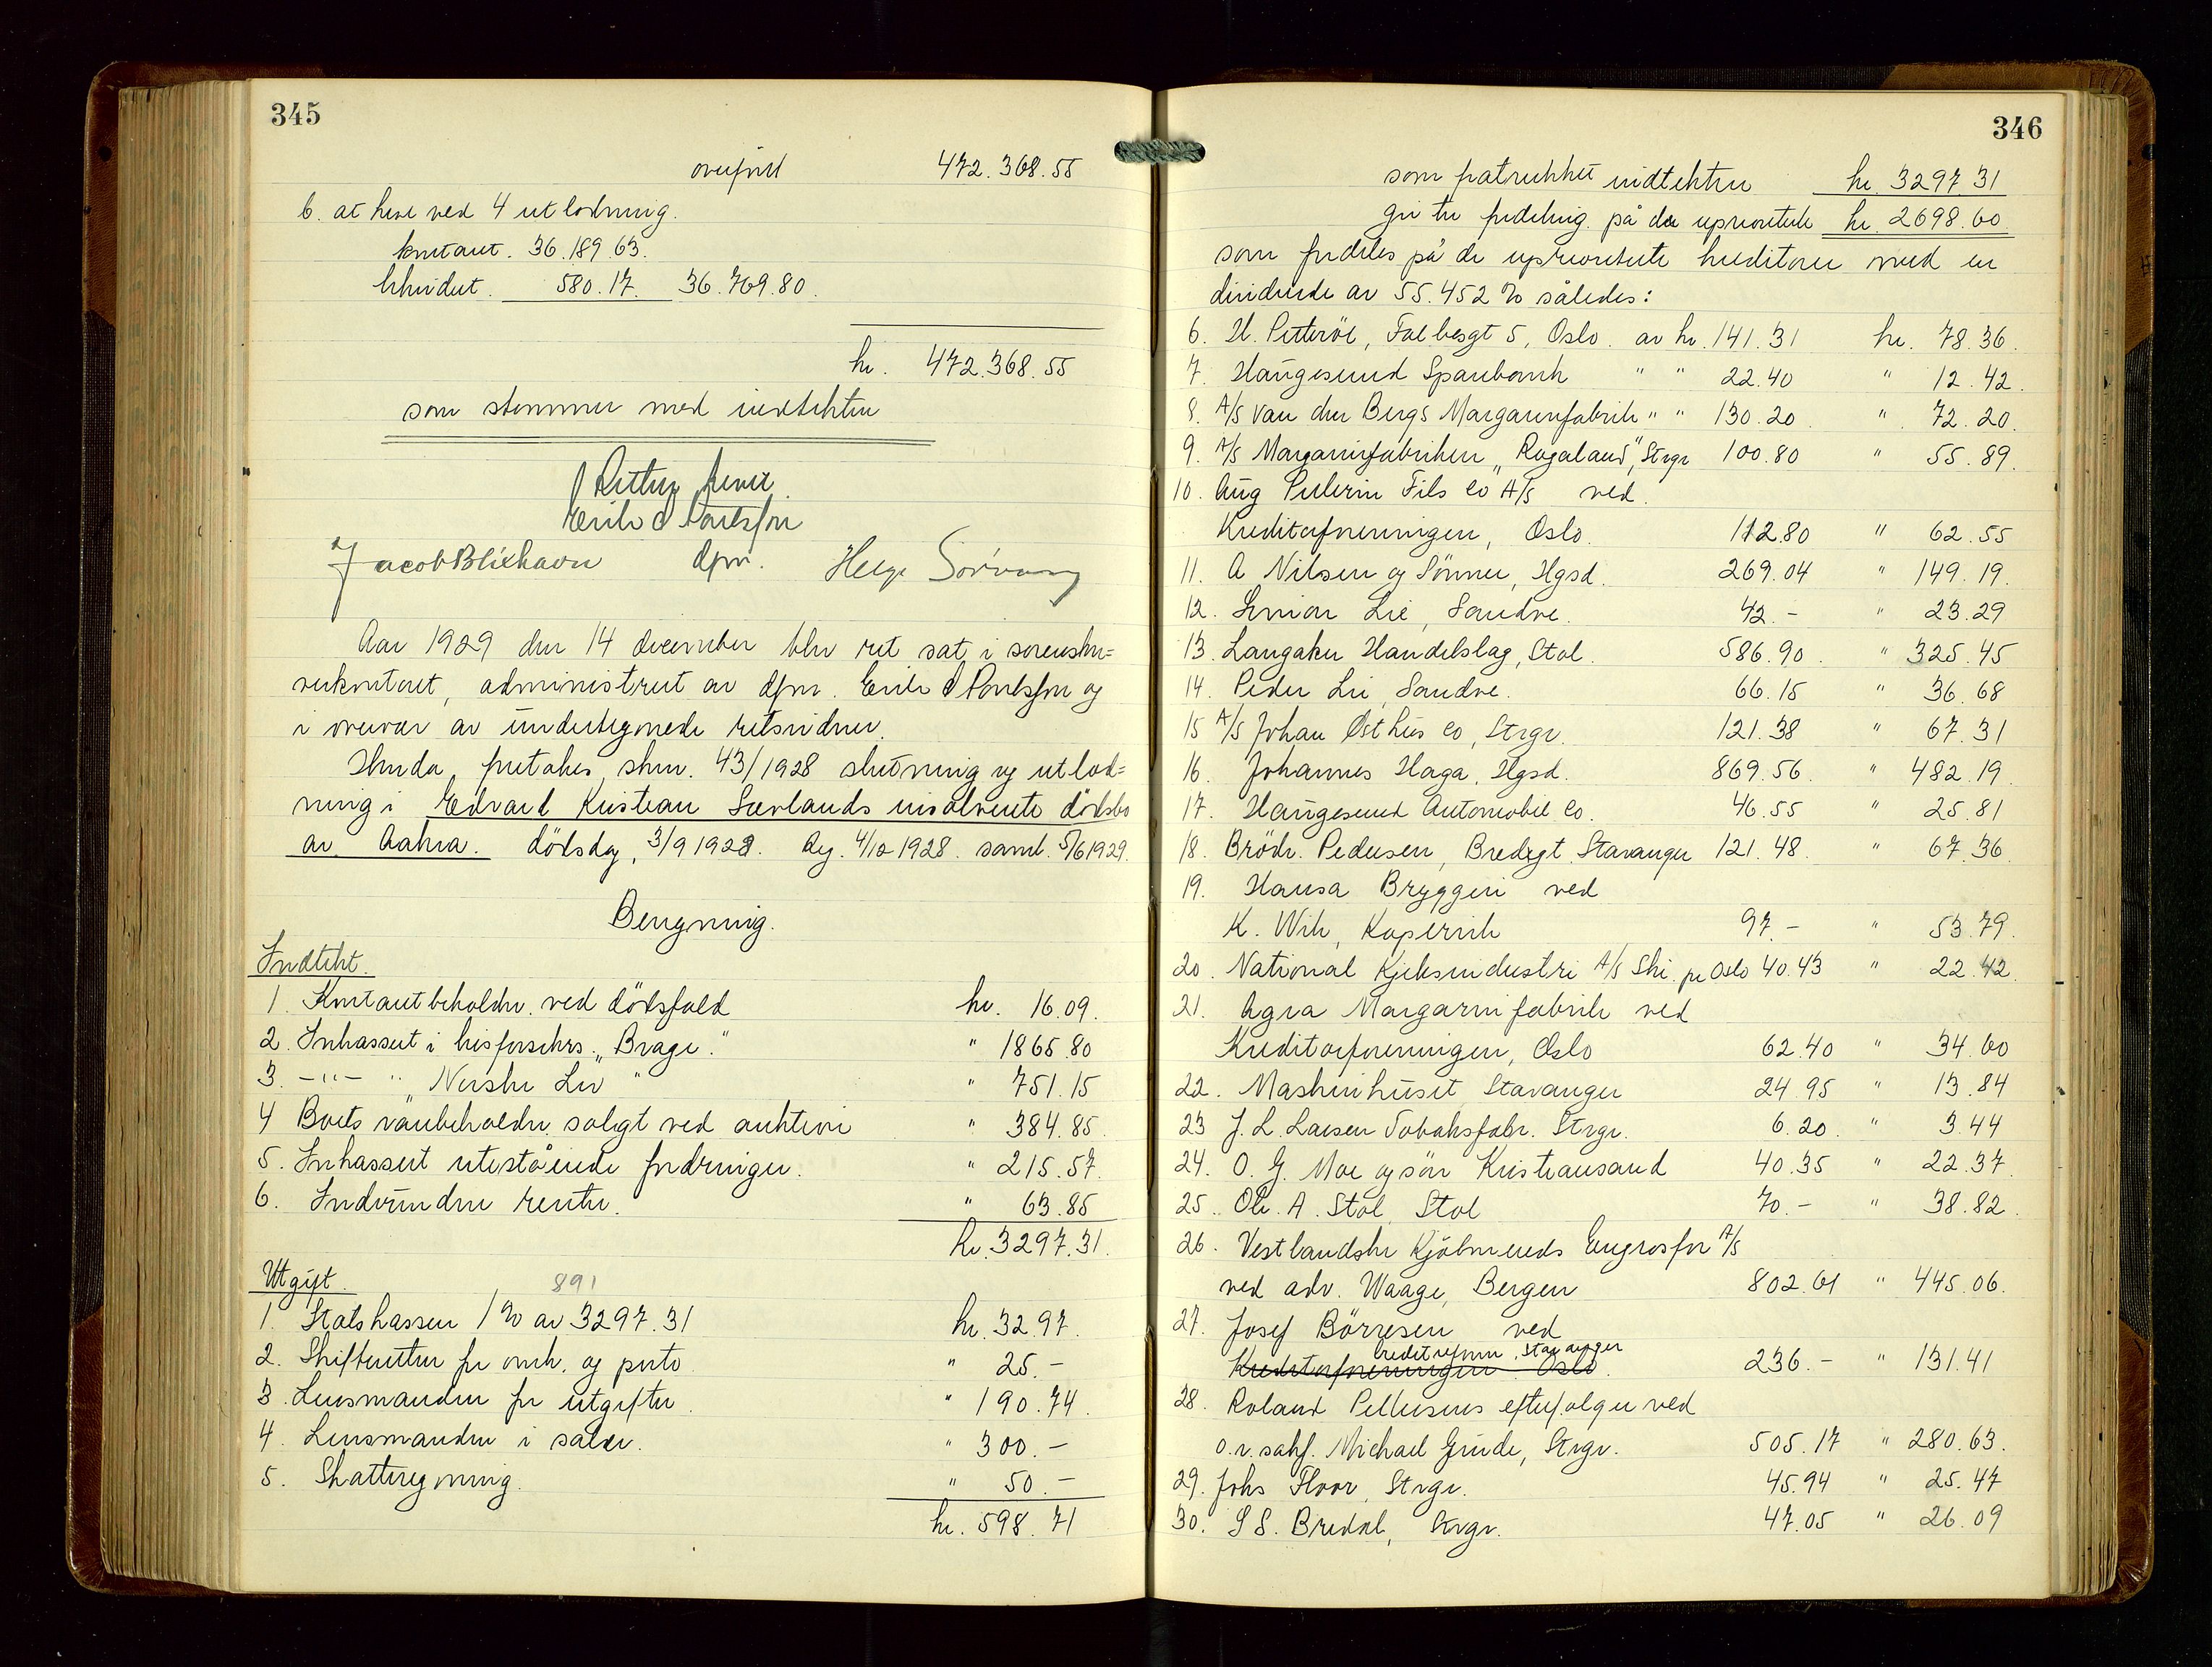 345
overført 472.368.55
6. at heve ved 4 utlodning.
kontant. 36.189.63.
580.17. 36.769.80.
kr. 472.368.55
som stemmer med indtekten
Retten hevet.
Erik C Poulsson
Jacob Blikhavn dfm. Helge Sörvaag
Aar 1929 den 14 december blev ret sat i sorenskri=
verkontoret, administrert av dfm. Erik C Poulsson og
i overvær av undertegnede retsvidner.
Herda foretakes skn. 43/1928 slutning og utlod=
ning i Edvard Kristian Sævlands insolvente dödsbo
av Aakra. dödsdag, 3/9 1928. Reg. 4/10 1928. saml. 5/6 1929.
Beregning.
Indtekt.
1. Kontantbeholdn. ved dödsfald kr. 16.09.
2. Inkassert i livsforsikrs. „Brage." " 1865.80
3. -"- " „Norske Liv" " 751.15
4 Boets varebeholdn. solgt ved auktion " 384.85.
5. Inkassert utestående fordringer. " 215.57.
6. Indvundne renter. " 63.85
Kr. 3297.31.
Utgift. 891
1. Statskassen 1% av 3297.31 kr. 32.97.
2. Skifteretten for omk. og porto " 25.-
3. Lensmanden for utgifter. " 190.74.
4. Lensmanden i salær. " 300.-
5. Skatteregning. " 50.-
kr. 598.71
346
som fratrukket indtekten kr. 3297 31
gir til fordeling på de uprioriterte kr. 2698.60
som fordeles på de uprioriterte kreditorer med en
dividende av 55.452 % således:
6. H. Petteröe, Falbesgt 5, Oslo. av kr. 141.31 kr. 78.36.
7. Haugesund Sparebank " " 22.40 " 12.42.
8. A/S van den Bergs Margarinfabrik " " 130.20 " 72.20.
9. A/S Margarinfabriken „Rogaland", Stvgr 100.80 " 55.89.
10. Aug Pellerin Fils Co A/S ved
Kreditorforeningen, Oslo. 112.80 " 62.55
11. A Nilsen og Sönner, Hgsd. 269.04 " 149.19.
12. Lie, Sandve. 42.- " 23.29
13. Langaker Handelslag, Stol. 586.90. " 325.45
14. Peder Lie, Sandve. 66.15 " 36.68
15 A/S Johan Østhus Co, Stvgr. 121.38 " 67.31
16. Johannes Haga, Hgsd. 869.56. " 482.19.
17. Haugesund Automobil Co. 46.55 " 25.81
18. Brödr. Pedersen, Bredegt. Stavanger 121.48. " 67.36.
19. Hansa Bryggeri ved
K. Wik, Kopervik 97.- " 53.79.
20. National Kjeksindustri A/S Ski. pr Oslo 40.43 " 22.42.
21. Agra Margarinfabrik ved
Kreditorforeningen, Oslo 62.40 " 34.60
22. Maskinhuset Stavanger 24.95 " 13.84
23 J. L. Larsen Tobaksfabr. Stvgr. 6.20. " 3.44
24. O. G. Moe og sön Kristiansand 40.35 " 22.37.
25. Ole. A. Stol, Stol 70.- " 38.82.
26. Vestlandske Kjöbmænds Engrosfor A/S
ved adv. Waage, Bergen 802.61 " 445.06.
27. Josef Börresen ved
Creditreform, Stavanger
Kreditorforeningen Oslo. 236.- " 131.41
28. Roland Pettersens efterfølger ved
o.r.sakf. Michael Grude, Stvgr. 505.17 " 280.63.
29. Johs Floor, Stvgr. 45.94 " 25.47
30. S S. Bredal, Stvgr. 47.05 " 26.09